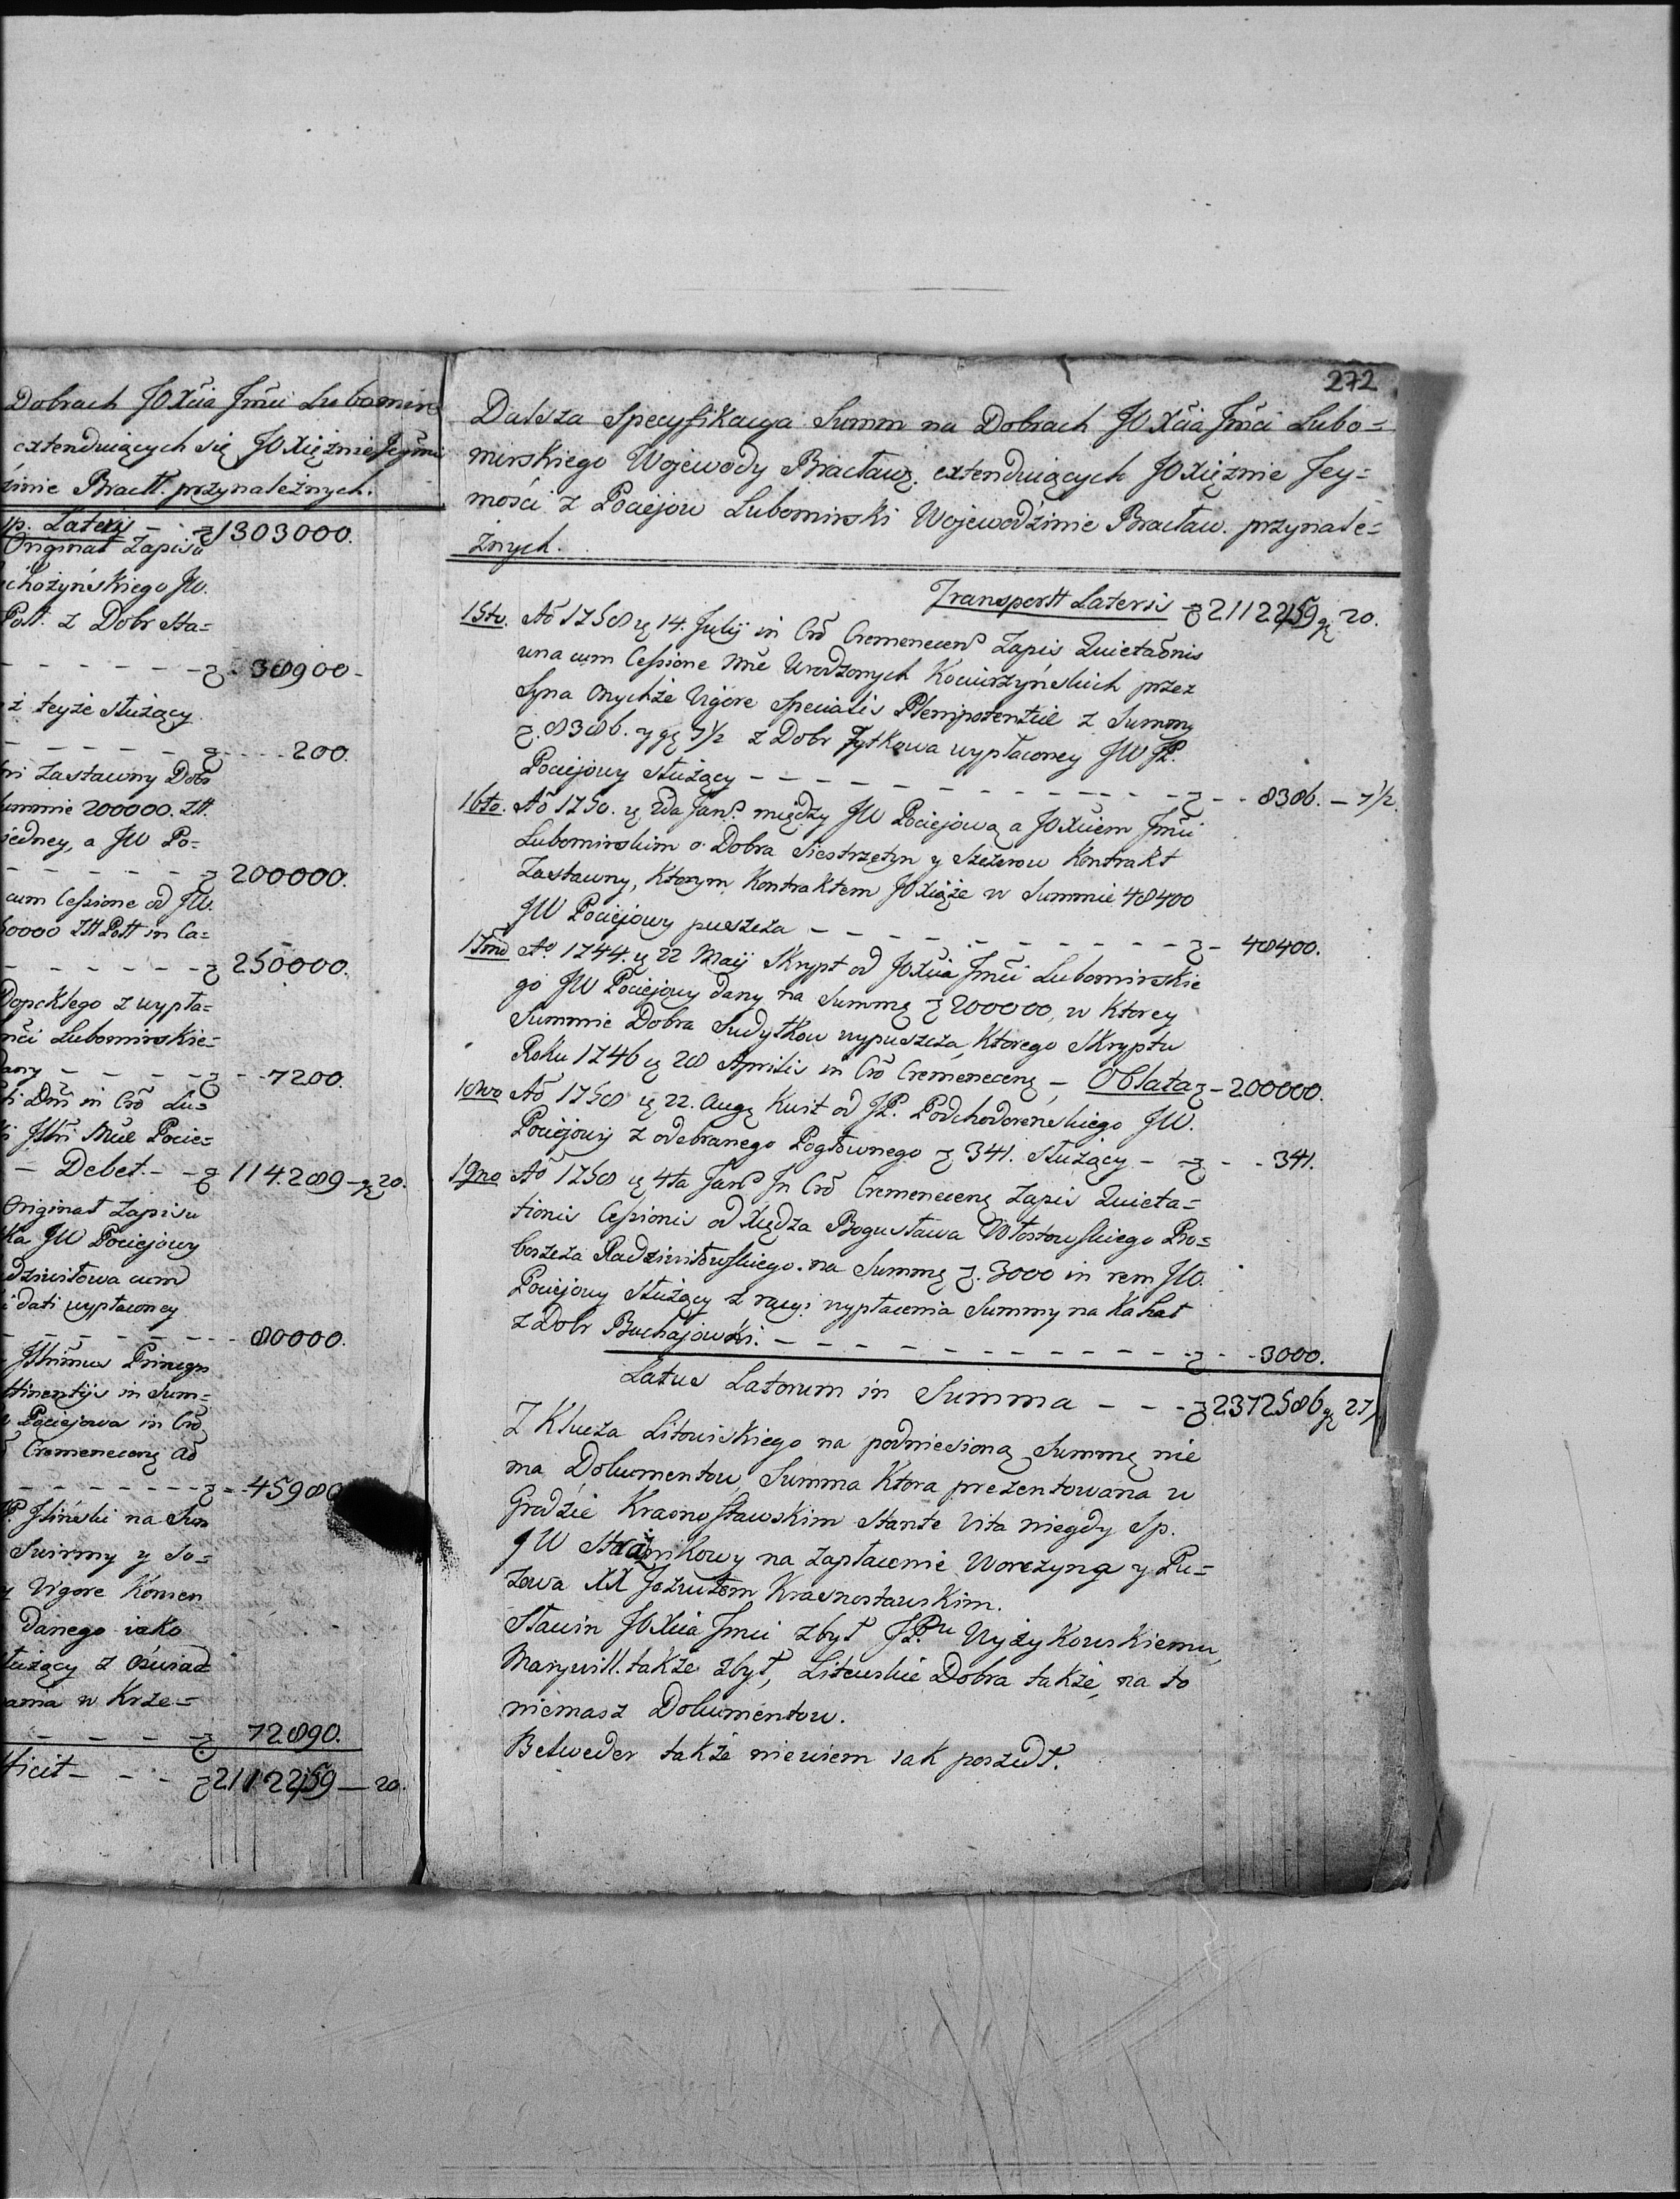 Dobrach JO Xcia Jmci Lubomirs
extenduiących się JO Xiężnie Jeymci
żinie Bractt. przynależnych.
sp. Lateris - 1303000.
Originał Zapisu
chożyńskiego JW.
Pott. z Dobr Sta=
38900-
i teyże służący
200.
tri zastawny Dobr
summie 200000. Ztt.
iedney, a JW Po=
200000.
cum Cessione od JW.
50000 Ztt Pott in Ca=
250000.
Dopckiego z wypła=
mci Lubomirskie=
dany - - - - 7200.
ti Dni in Crō Lu=
Jttri Mūe Pocie=
- Debet. - - 114289 - gę 20.
Originał Zapisu
Ka JW Pociejowy
adziwiłowa cum
i dati wypłaconey
80000.
Jttrimus Princeps
ttinentijs in Sum=
Pociejowa in Crō
Cremenecenę Aō
45980
JP. Jlinski na Sum
Swirmy y So=
Vigore Komen
danego iako
służący z oświad
ania w Krze=
72890.
fficit - - - 2112259 - 20.
272
Dalsza Specyfikacya Summ na Dobrach JO Xcia Jmci Lubo=
mirskiego Wojewody Bracławę. extenduiących JO Xiężnie Jey=
mości z Pociejow Lubomirski Wojewodzinie Bracław. przynale=
żnych.
Transportt Lateris 2112259 gę 20.
15to. Aō 1758 ę 14. Julij in Crō Cremenecens Zapis Quietaōnis
una cum Cessione Mūe Urodzonych Kociurzyńskich przez
Syna onychże Vigore Specialis Plenipotentiæ z Summy
8386. y gę 7½ z Dobr Zytkowa wypłaconey JW JP.
Pociejowy służący - - - - 8386. - 7½.
16to. Aō 1750. ę 2da Jan. między JW Pociejową a JO Xciem Jmci
Lubomirskim o Dobra Siestrzętyn y Szeżerow Kontrakt
Zastawny, Ktorym Kontraktem JO Xiąże w Summie 48400
JW Pociejowy puszcza - - - - 48400.
17mo Aō. 1744. ę 22 Maij Skrypt od JO Xcia Jmci Lubomirskie
go JW Pociejowy dany na Summę 200000, w Ktorey
Summie Dobra Sudytkow wypuszcza, Ktorego Skryptu
Roku 1746 ę 28 Aprilis in Crō Cremenecenę - Oblata - 200000.
18wo Aō 1758 ę 22. Augę Kwit od JP. Podchodorenskiego JW.
Pociejowy z odebranego Pogłownego 341. służący - - - 341.
19no Aō 1758 ę 4ta Jans Jn Crō Cremenecenę Zapis Quieta=
tionis Cessionis od Xiędza Bogusława Włostowskiego Pro=
boszcza Radziwiłowskiego. na Summę 3000 in rem JW.
Pociejowy służący z racyi wypłacenia Summy na Kahał
z Dobr Buchajowki. - - - - 3000.
Latus Latorum in Summa - - - 2372586 gę 27½
Z Klucza Litowiskiego na podniesioną Summę nie
ma Dokumentow, Summa Ktora prezentowana w
Grodzie Krasnostawskim stante vita niegdy Sp.
JW Strażnikowy na zapłacenie Worczyna y Pu=
zowa XX Jezuitom Krasnostawskim.
Stawin JO Xcia Jmci zbył JPu Wyżykowskiemu,
Marywill. także zbył, Litewskie Dobra także, na to
niemasz Dokumentow.
Belweder także niewiem iak poszedł.